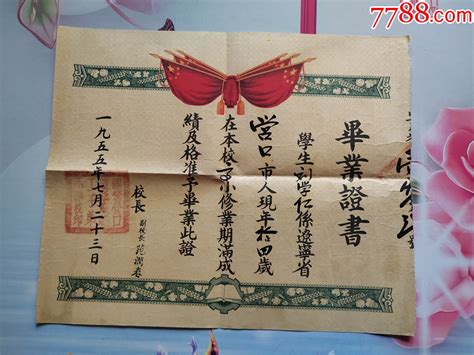 7788.com
畢業證書
學生刘学仁係遼寧省
營口市人現年拾四歲
在本校高小修業期滿成
績及格准予畢業此證
校長
副校長范瀛春
一九五五年七月二十三日